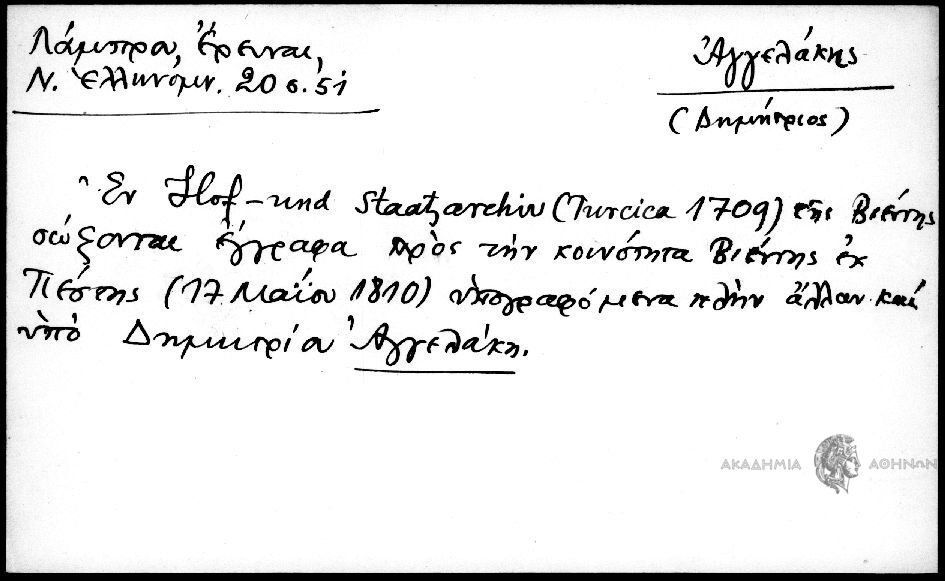 Λάμπρου, Ἔρευναι,
Ν. Ἑλληνομν. 20 σ. 51
Ἀγγελάκης
(Δημήτριος)
Ἐν Hof-und Staatsarchiv (Turcica 1709) τῆς Βιέννης
σώζονται ἔγγραφα πρὸς τὴν κοινότητα Βιέννης ἐκ
Πέστης (17 Μαΐου 1810) ὑπογραφόμενα πλὴν ἄλλων καὶ
ὑπὸ Δημητρίου Ἀγγελάκη.
ΑΚΑΔΗΜΙΑ ΑΘΗΝΩΝ